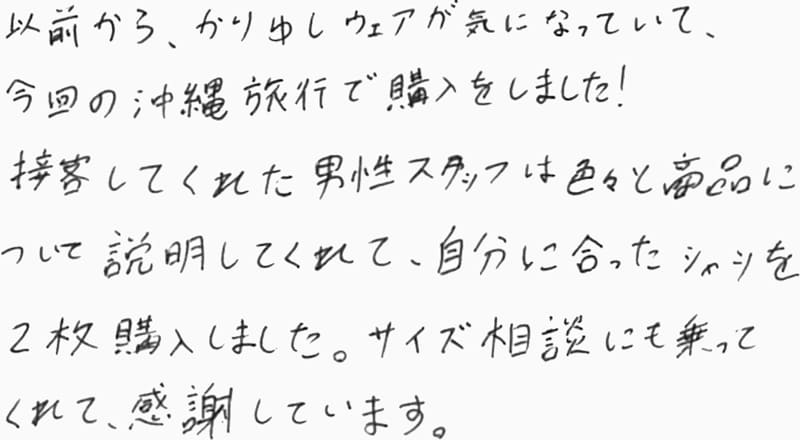 以前から、かりゆしウェアが気になっていて、
今回の沖縄旅行で購入をしました!
接客してくれた男性スタッフは色々と商品に
ついて説明してくれて、自分に合ったシャツを
2枚購入しました。サイズ相談にも乗って
くれて、感謝しています。